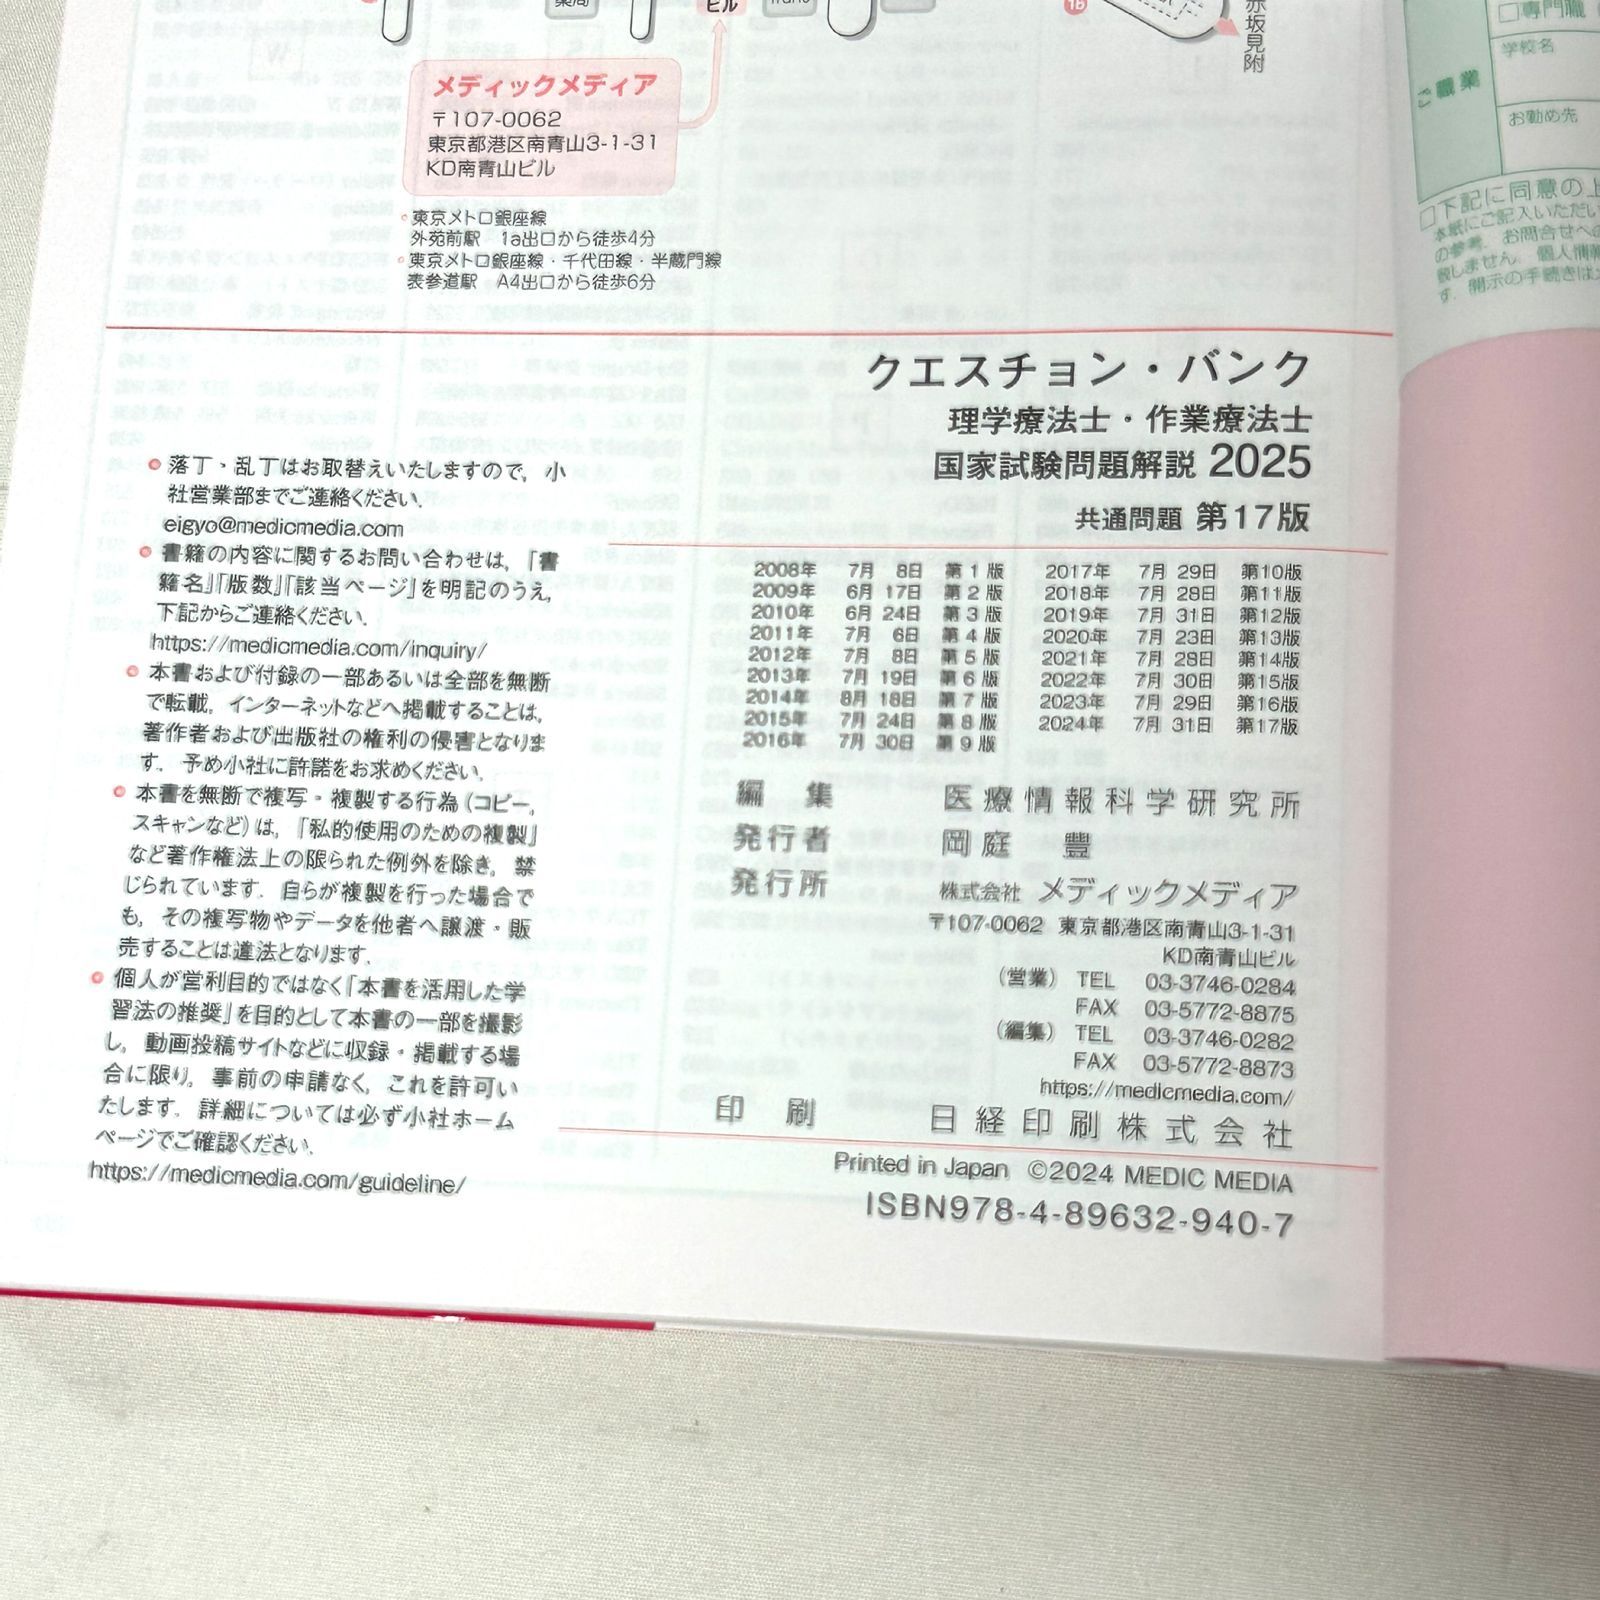 薬局
ビル
Trans
1b
赤坂見附
メディックメディア
〒107-0062
東京都港区南青山3-1-31
KD南青山ビル
東京メトロ銀座線
外苑前駅 1a出口から徒歩4分
東京メトロ銀座線・千代田線・半蔵門線
表参道駅 A4出口から徒歩6分
クエスチョン・バンク
理学療法士・作業療法士
国家試験問題解説 2025
共通問題 第17版
● 落丁・乱丁はお取替えいたしますので，小
社営業部までご連絡ください．
eigyo@medicmedia.com
● 書籍の内容に関するお問い合わせは，「書
籍名」「版数」「該当ページ」を明記のうえ，
下記からご連絡ください．
https://medicmedia.com/inquiry/
● 本書および付録の一部あるいは全部を無断
で転載，インターネットなどへ掲載することは，
著作者および出版社の権利の侵害となりま
す．予め小社に許諾をお求めください．
● 本書を無断で複写・複製する行為（コピー，
スキャンなど）は，「私的使用のための複製」
など著作権法上の限られた例外を除き，禁
じられています．自らが複製を行った場合で
も，その複写物やデータを他者へ譲渡・販
売することは違法となります．
● 個人が営利目的ではなく「本書を活用した学
習法の推奨」を目的として本書の一部を撮影
し，動画投稿サイトなどに収録・掲載する場
合に限り，事前の申請なく，これを許可い
たします．詳細については必ず小社ホーム
ページでご確認ください．
https://medicmedia.com/guideline/
2008年 7月 8日 第1版
2009年 6月 17日 第2版
2010年 6月 24日 第3版
2011年 7月 6日 第4版
2012年 7月 8日 第5版
2013年 7月 19日 第6版
2014年 8月 18日 第7版
2015年 7月 24日 第8版
2016年 7月 30日 第9版
2017年 7月 29日 第10版
2018年 7月 28日 第11版
2019年 7月 31日 第12版
2020年 7月 23日 第13版
2021年 7月 28日 第14版
2022年 7月 30日 第15版
2023年 7月 29日 第16版
2024年 7月 31日 第17版
編 集 医療情報科学研究所
発行者 岡庭 豊
発行所 株式会社 メディックメディア
〒107-0062 東京都港区南青山3-1-31
KD南青山ビル
（営業） TEL 03-3746-0284
FAX 03-5772-8875
（編集） TEL 03-3746-0282
FAX 03-5772-8873
https://medicmedia.com/
印 刷 日経印刷株式会社
Printed in Japan ©2024 MEDIC MEDIA
ISBN978-4-89632-940-7
□専門職
学校名
職業
お勤め先
□下記に同意の上
本紙にご記入いただい
の参考，お問合せへの
致しません．個人情報
す．開示の手続きは